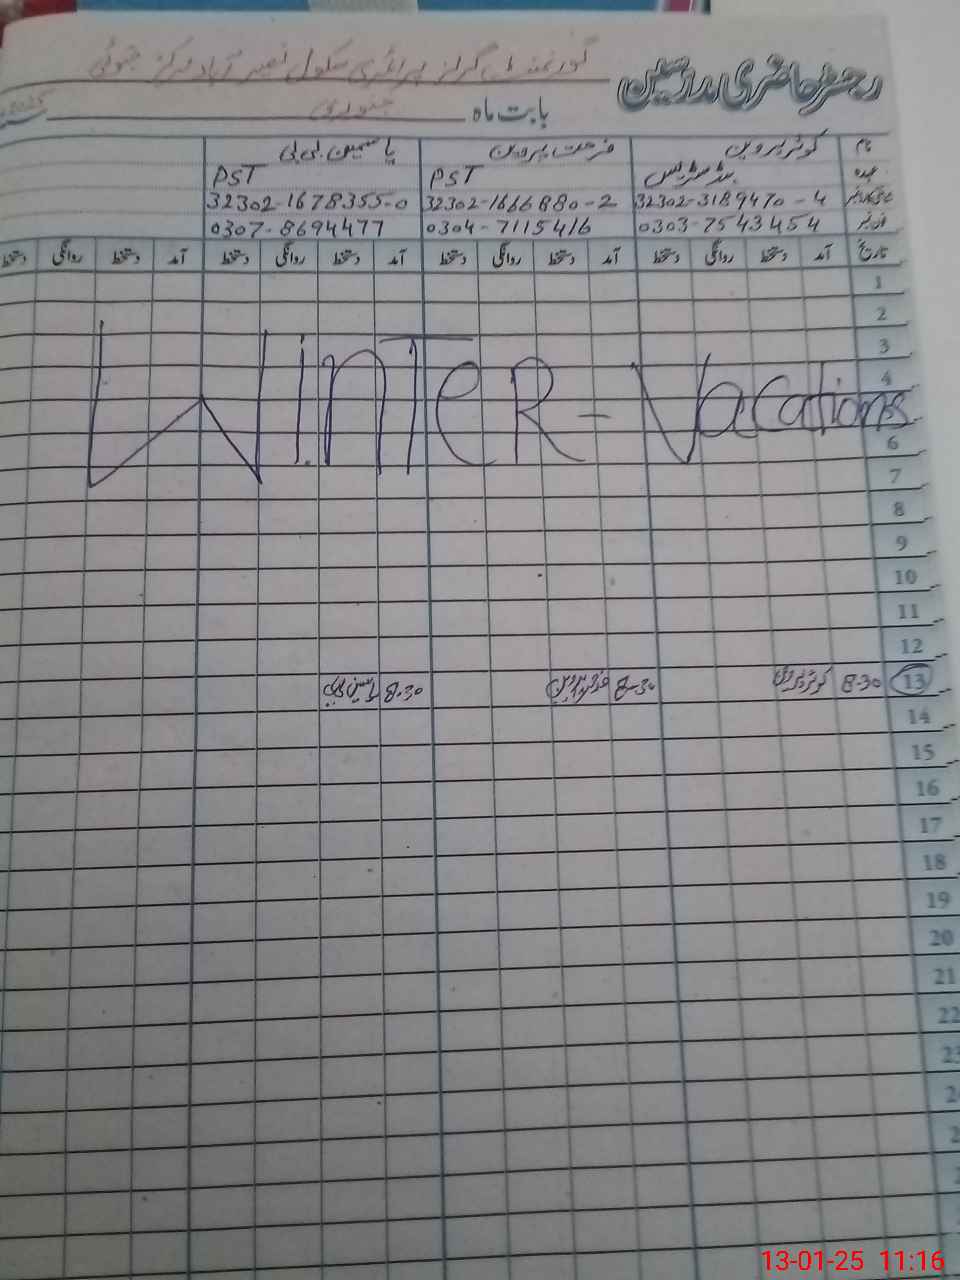 رجسٹر حاضری مدارسین گورنمنٹ گرلز پرائمری سکول نصیر آباد مرکز جتوئی
بابت ماہ جنوری
نام کوثر پروین فرحت پروین یاسمین بی بی
عہدہ ہیڈ مسٹریس PST PST
32302-3189470-4 32302-1666880-2 32302-1678355-0
0303-7543454 0304-7115416 0307-8694477
تاریخ آمد دستخط روانگی دستخط آمد دستخط روانگی دستخط آمد دستخط روانگی دستخط آمد دستخط روانگی دستخط
1
2
3
4
WinTeR-Vacations
6
7
8
9
10
11
12
13 8-30 کوثر پروین 8-30 فرحت پروین 8-30 یاسمین بی بی
14
15
16
17
18
19
20
21
22
13-01-25 11:16